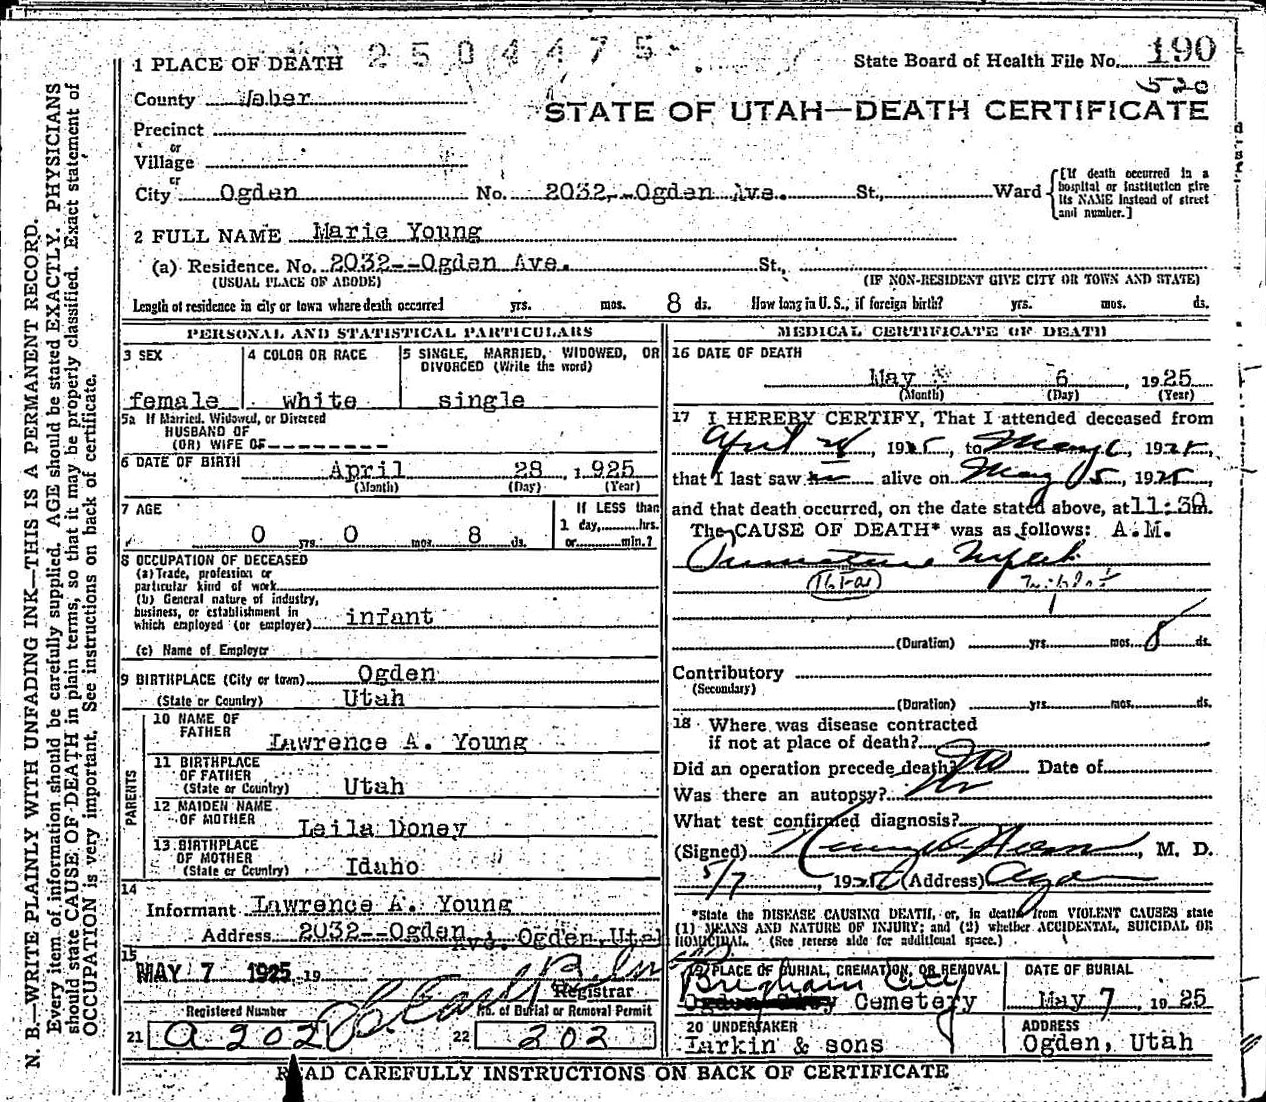 2 5 0 4 4 7 5
1 PLACE OF DEATH
State Board of Health File No. 190
520
County Weber
STATE OF UTAH—DEATH CERTIFICATE
Precinct
or
Village
or
City Ogden No. 2032--Ogden Ave. St., Ward
[If death occurred in a hospital or institution give its NAME instead of street and number.]
2 FULL NAME Marie Young
(a) Residence. No. 2032--Ogden Ave. St.,
(USUAL PLACE OF ABODE) (IF NON-RESIDENT GIVE CITY OR TOWN AND STATE)
Length of residence in city or town where death occurred yrs. mos. 8 ds. How long in U. S., if foreign birth? yrs. mos. ds.
PERSONAL AND STATISTICAL PARTICULARS
3 SEX
female
4 COLOR OR RACE
white
5 SINGLE, MARRIED, WIDOWED, OR DIVORCED (Write the word)
single
5a If Married, Widowed, or Divorced
HUSBAND OF
(OR) WIFE OF ---------
6 DATE OF BIRTH April 28, 1925
(Month) (Day) (Year)
7 AGE
0 yrs. 0 mos. 8 ds.
If LESS than
1 day, hrs.
or min.?
8 OCCUPATION OF DECEASED
(a) Trade, profession or
particular kind of work
(b) General nature of industry,
business, or establishment in
which employed (or employer) infant
(c) Name of Employer
9 BIRTHPLACE (City or town) Ogden
(State or Country) Utah
PARENTS
10 NAME OF
FATHER Lawrence A. Young
11 BIRTHPLACE
OF FATHER
(State or Country) Utah
12 MAIDEN NAME
OF MOTHER Leila Doney
13 BIRTHPLACE
OF MOTHER
(State or Country) Idaho
14
Informant Lawrence A. Young
Address 2032--Ogden Ave. Ogden, Utah
15
MAY 7 1925 19
Registrar
Registered Number
21 a 202
No. of Burial or Removal Permit
22 202
MEDICAL CERTIFICATE OF DEATH
16 DATE OF DEATH
May 6, 1925
(Month) (Day) (Year)
17 I HEREBY CERTIFY, That I attended deceased from
April 28, 1925, to May 6, 1925,
that I last saw alive on May 5, 1925,
and that death occurred, on the date stated above, at 11:30 m.
The CAUSE OF DEATH* was as follows: A.M.
Premature
(161-a)
(Duration) yrs. mos. 8 ds.
Contributory
(Secondary)
(Duration) yrs. mos. ds.
18 Where was disease contracted
if not at place of death?
Did an operation precede death? No Date of
Was there an autopsy? No
What test confirmed diagnosis?
(Signed) , M. D.
5/7, 1925 (Address) Ogden
*State the DISEASE CAUSING DEATH, or, in deaths from VIOLENT CAUSES state
(1) MEANS AND NATURE OF INJURY; and (2) whether ACCIDENTAL, SUICIDAL OR
HOMICIDAL. (See reverse side for additional space.)
19 PLACE OF BURIAL, CREMATION, OR REMOVAL
Brigham City
Ogden City Cemetery
DATE OF BURIAL
May 7, 1925
20 UNDERTAKER
Larkin & sons
ADDRESS
Ogden, Utah
READ CAREFULLY INSTRUCTIONS ON BACK OF CERTIFICATE
N. B.—WRITE PLAINLY WITH UNFADING INK—THIS IS A PERMANENT RECORD.
Every item of information should be carefully supplied. AGE should be stated EXACTLY. PHYSICIANS
should state CAUSE OF DEATH in plain terms, so that it may be properly classified. Exact statement of
OCCUPATION is very important. See instructions on back of certificate.